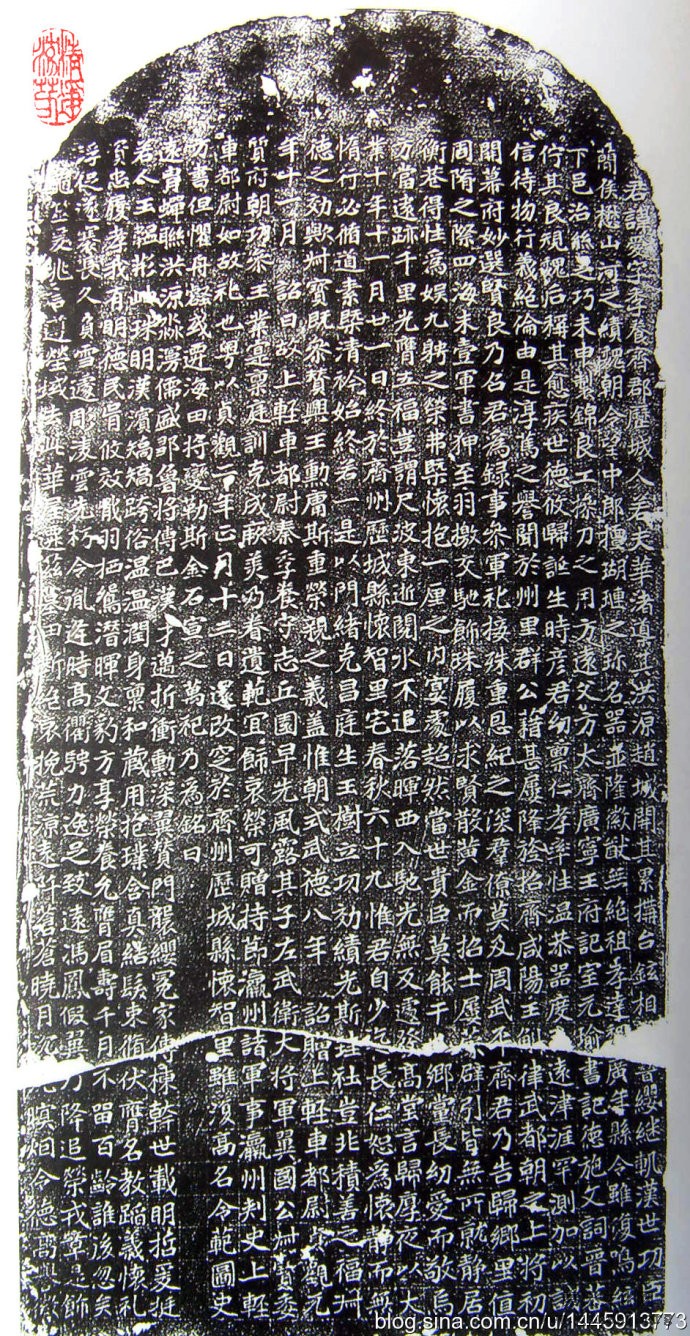 君諱愛字季養齊郡歷城人若夫華渚導其洪源趙城開其累構台鉉相簪纓繼軌漢世功臣
蘭侯懋山河之績魏朝令望中郎擅瑚璉之珎名器並隆徽猷無絶祖孝達廣年縣令雖復鳴絃
下邑治絲之巧未申製錦良工操刀之用方遠父方太齊廣寧王府記室元瑜書記德施文詞晉
佇其良規魏后稱其愈疾世德攸歸誕生時彦君幼禀仁孝率性温恭器度遠津涯罕測加以
信待物行義絶倫由是淳篤之譽聞於州里群公藉甚屢降旌招齊咸陽王斛律武都朝之上將初
開幕府妙選賢良乃召君為録事參軍礼接殊重恩紀之深群僚莫及周武平齊君乃告歸鄉里值
周隋之際四海未壹軍書狎至羽檄交馳飾珠履以求賢散黃金而招士屢辟引皆無所就静居
衡巷得性為娛九騁之榮弗槩懷抱一厘之内宴處超然當世貴臣莫能干鄉黨長幼愛而敬焉
方當遠跡千里光膺五福豈謂尺波東逝閱水不追落暉西入馳光無反遽高堂言歸厚夜以大
業十年十一月廿一日終於齊州歷城縣懷智里宅春秋六十九惟君自少長仁恕為懷静而無
惰行必脩道素槩清矜始終若一是以門緒克昌庭生玉樹立功効績光斯社豈非積善福
德之効歟叔寶既參贊興王勳庸斯重榮親之義蓋惟朝式武德八年詔贈上輕車都尉貞觀元
年十一月詔曰故上輕車都尉秦季養守志丘園早先風露其子左武衛大將軍翼國公叔寶委
質府朝功參王業寔禀庭訓克成厥美乃眷遺範宜飾哀榮可贈持節瀛州諸軍事瀛州刺史上輕
車都尉如故礼也粤以貞觀二年正月十二日還改窆於齊州歷城縣懷智里雖復高名令範圖史
方書但懼舟壑或遷海田將變勒斯金石宣之萬祀乃為銘曰
遠胄蟬聯洪源淼漫儒盛鄒魯將傳巴漢才遞折衝勳深翼贊門襲纓冕家傳楨幹世載明哲爰挺
若人王韞彬幽珠明漢濱矯矯跨俗温温潤身禀和藏用抱璞含真結髮束脩伏膺名教蹈義懷礼
資忠履孝我有明德民胥攸效戢羽栖鴛潛暉文豹方享榮養允膺眉壽千月不留百齡誰後忽矣
浮促遂寨長久負雪凌雲先朽令胤逢時高衢騁力逸足致遠馮鳳假翼乃降追榮式算是飾
兆言塋域此華墓田哀挽荒凉遠阡蒼蒼曉月暝烟令德
blog.sina.com.cn/u/1445913773